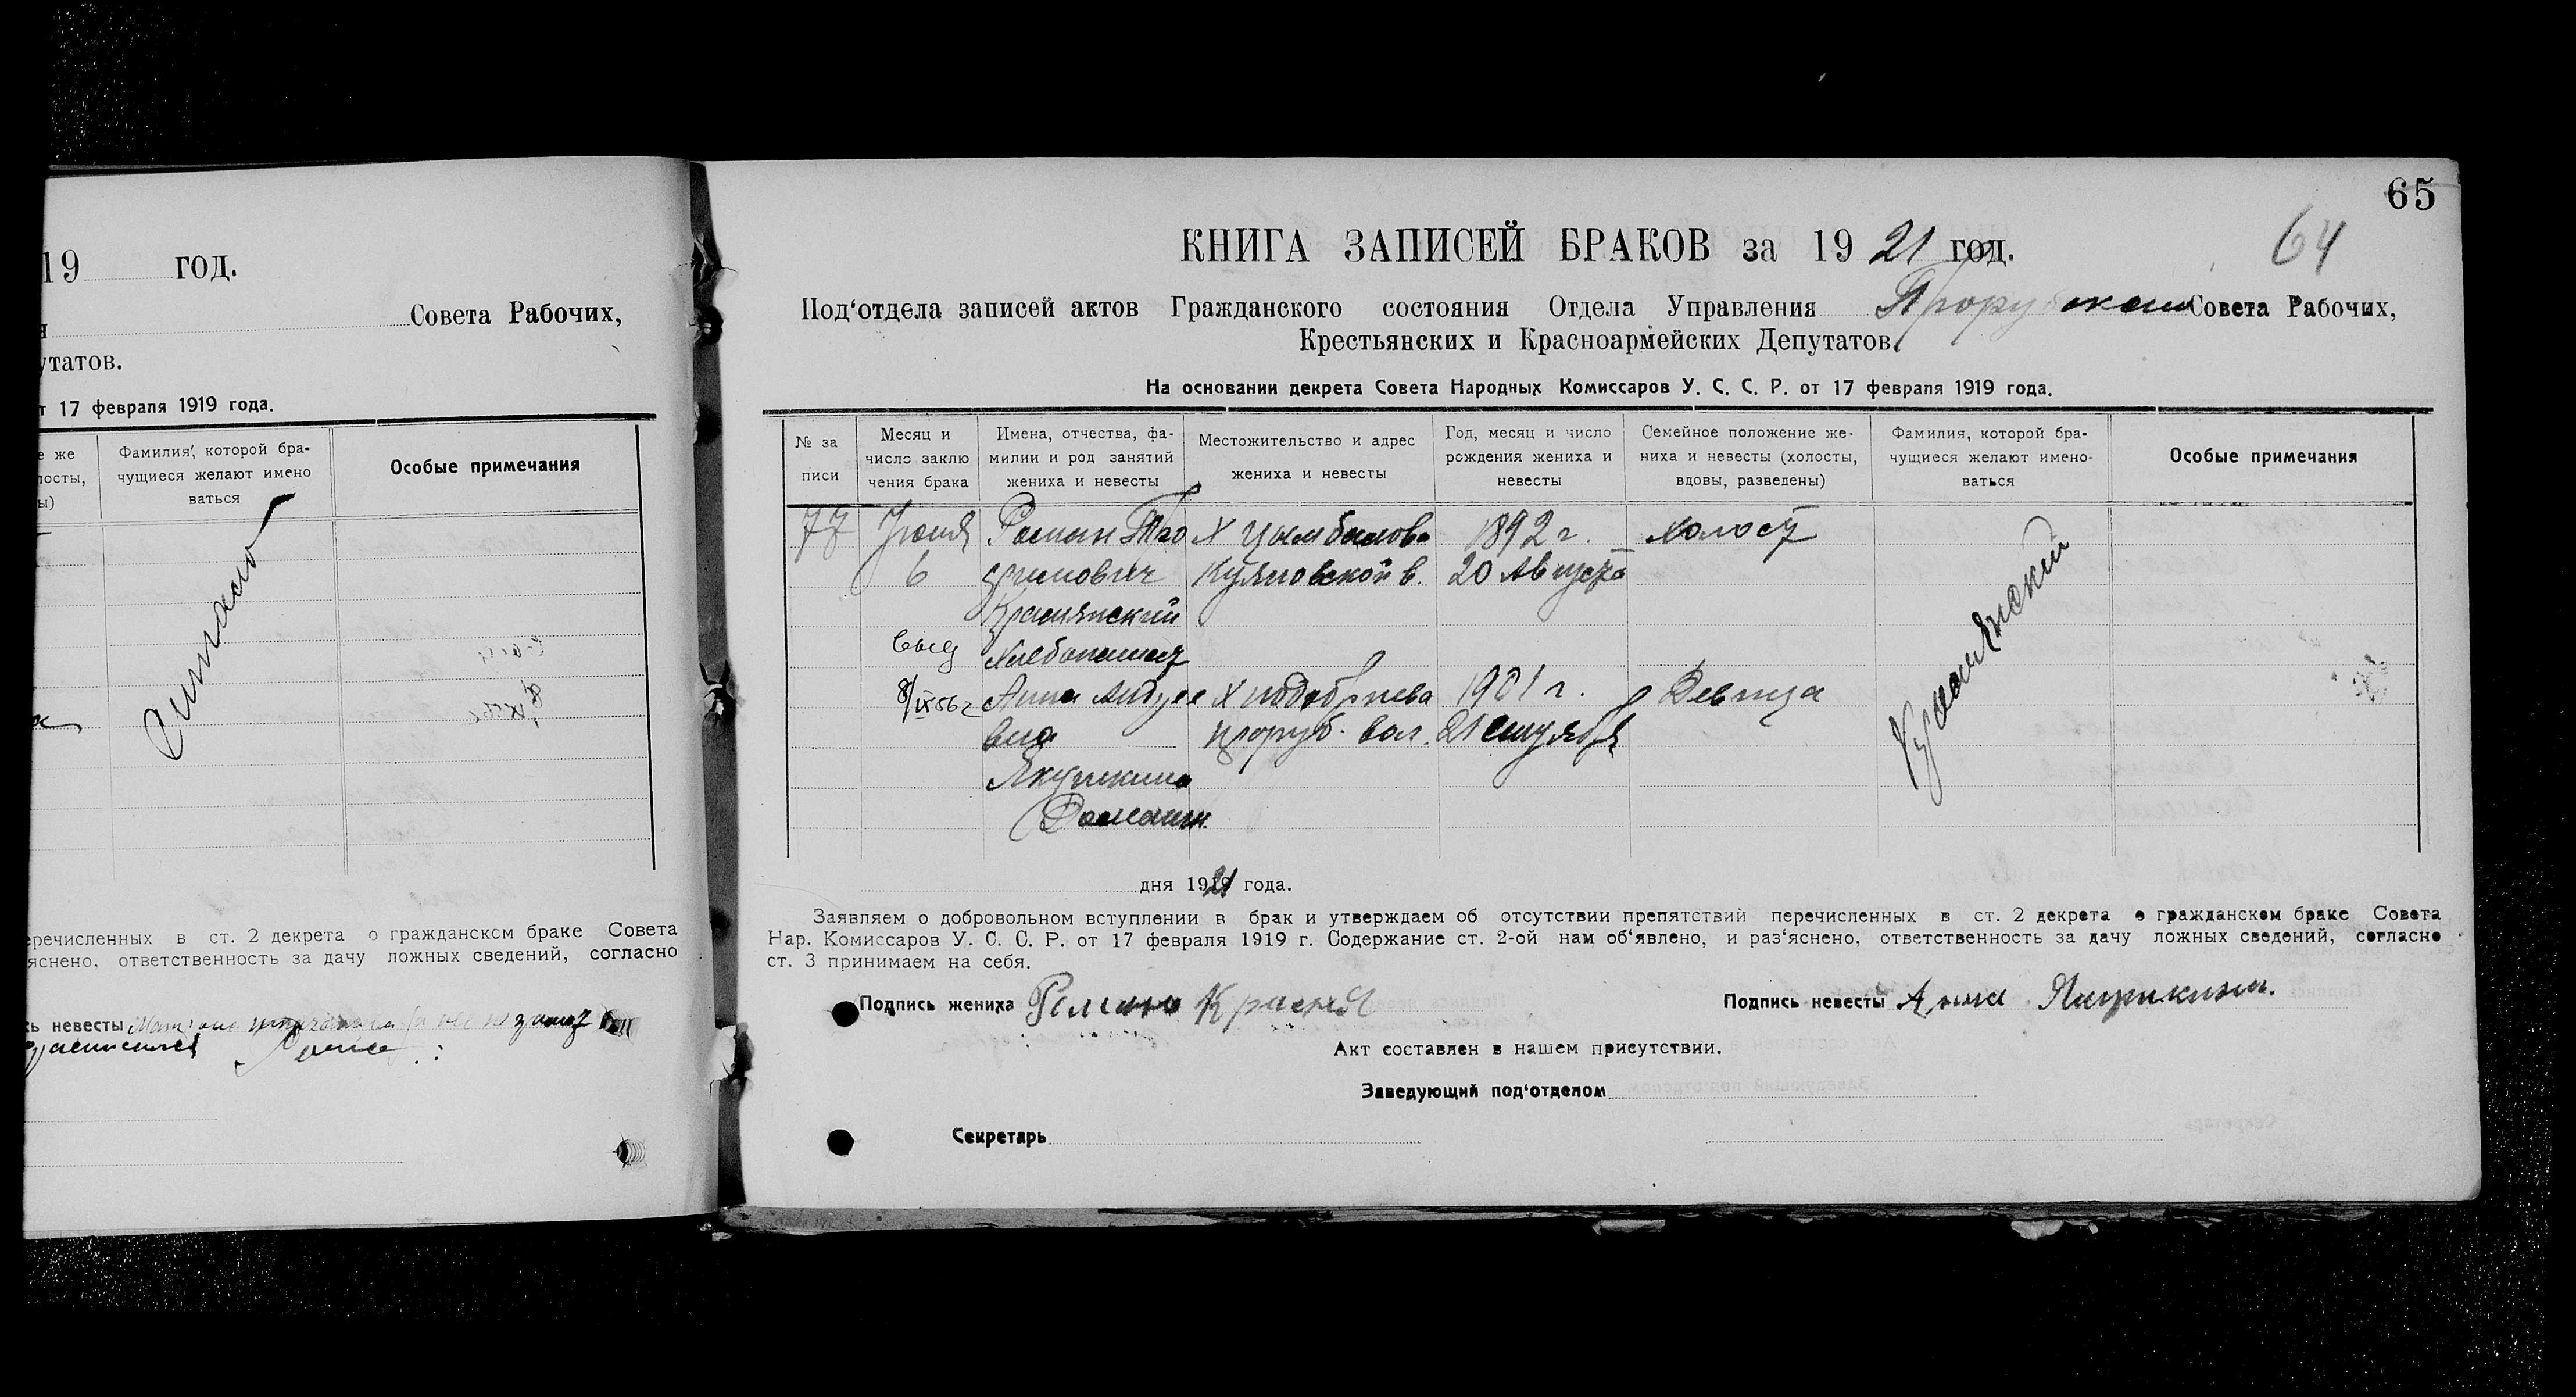 19 год.
Совета Рабочих,
утатов.
т 17 февраля 1919 года.
е же
лосты,
ы)
Фамилия, которой бра-
чущиеся желают имено
ваться
Особые примечания
еречисленных в ст. 2 декрета о гражданском браке Совета
яснено, ответственность за дачу ложных сведений, согласно
ь невесты
65
64
КНИГА ЗАПИСЕЙ БРАКОВ за 1921 год.
Под‘отдела записей актов Гражданского состояния Отдела Управления Совета Рабочих,
Крестьянских и Красноармейских Депутатов.
На основании декрета Совета Народных Комиссаров У. С. С. Р. от 17 февраля 1919 года.
№ за
писи
Месяц и
число заклю
чения брака
Имена, отчества, фа-
милии и род занятий
жениха и невесты
Местожительство и адрес
жениха и невесты
Год, месяц и число
рождения жениха и
невесты
Семейное положение же-
ниха и невесты (холосты,
вдовы, разведены)
Фамилия, которой бра-
чущиеся желают имено-
ваться
Особые примечания
77
Июня
6
8/IX 56 г
Роман
Краснянский
Хлебопашец
Анна Андрее
вна
Якушкина
Домашн.
Х Цымбалова
Куяновской в.
Х
проруб. вол.
1892 г.
20 Августа
1901 г.
холост
Девица
Краснянский
дня 1921 года.
Заявляем о добровольном вступлении в брак и утверждаем об отсутствии препятствий перечисленных в ст. 2 декрета о гражданском браке Совета
Нар. Комиссаров У. С. С. Р. от 17 февраля 1919 г. Содержание ст. 2-ой нам об‘явлено, и раз‘яснено, ответственность за дачу ложных сведений, согласно
ст. 3 принимаем на себя.
Подпись жениха Роман
Подпись невесты Анна Якушкина.
Акт составлен в нашем присутствии.
Заведующий под‘отделом
Секретарь